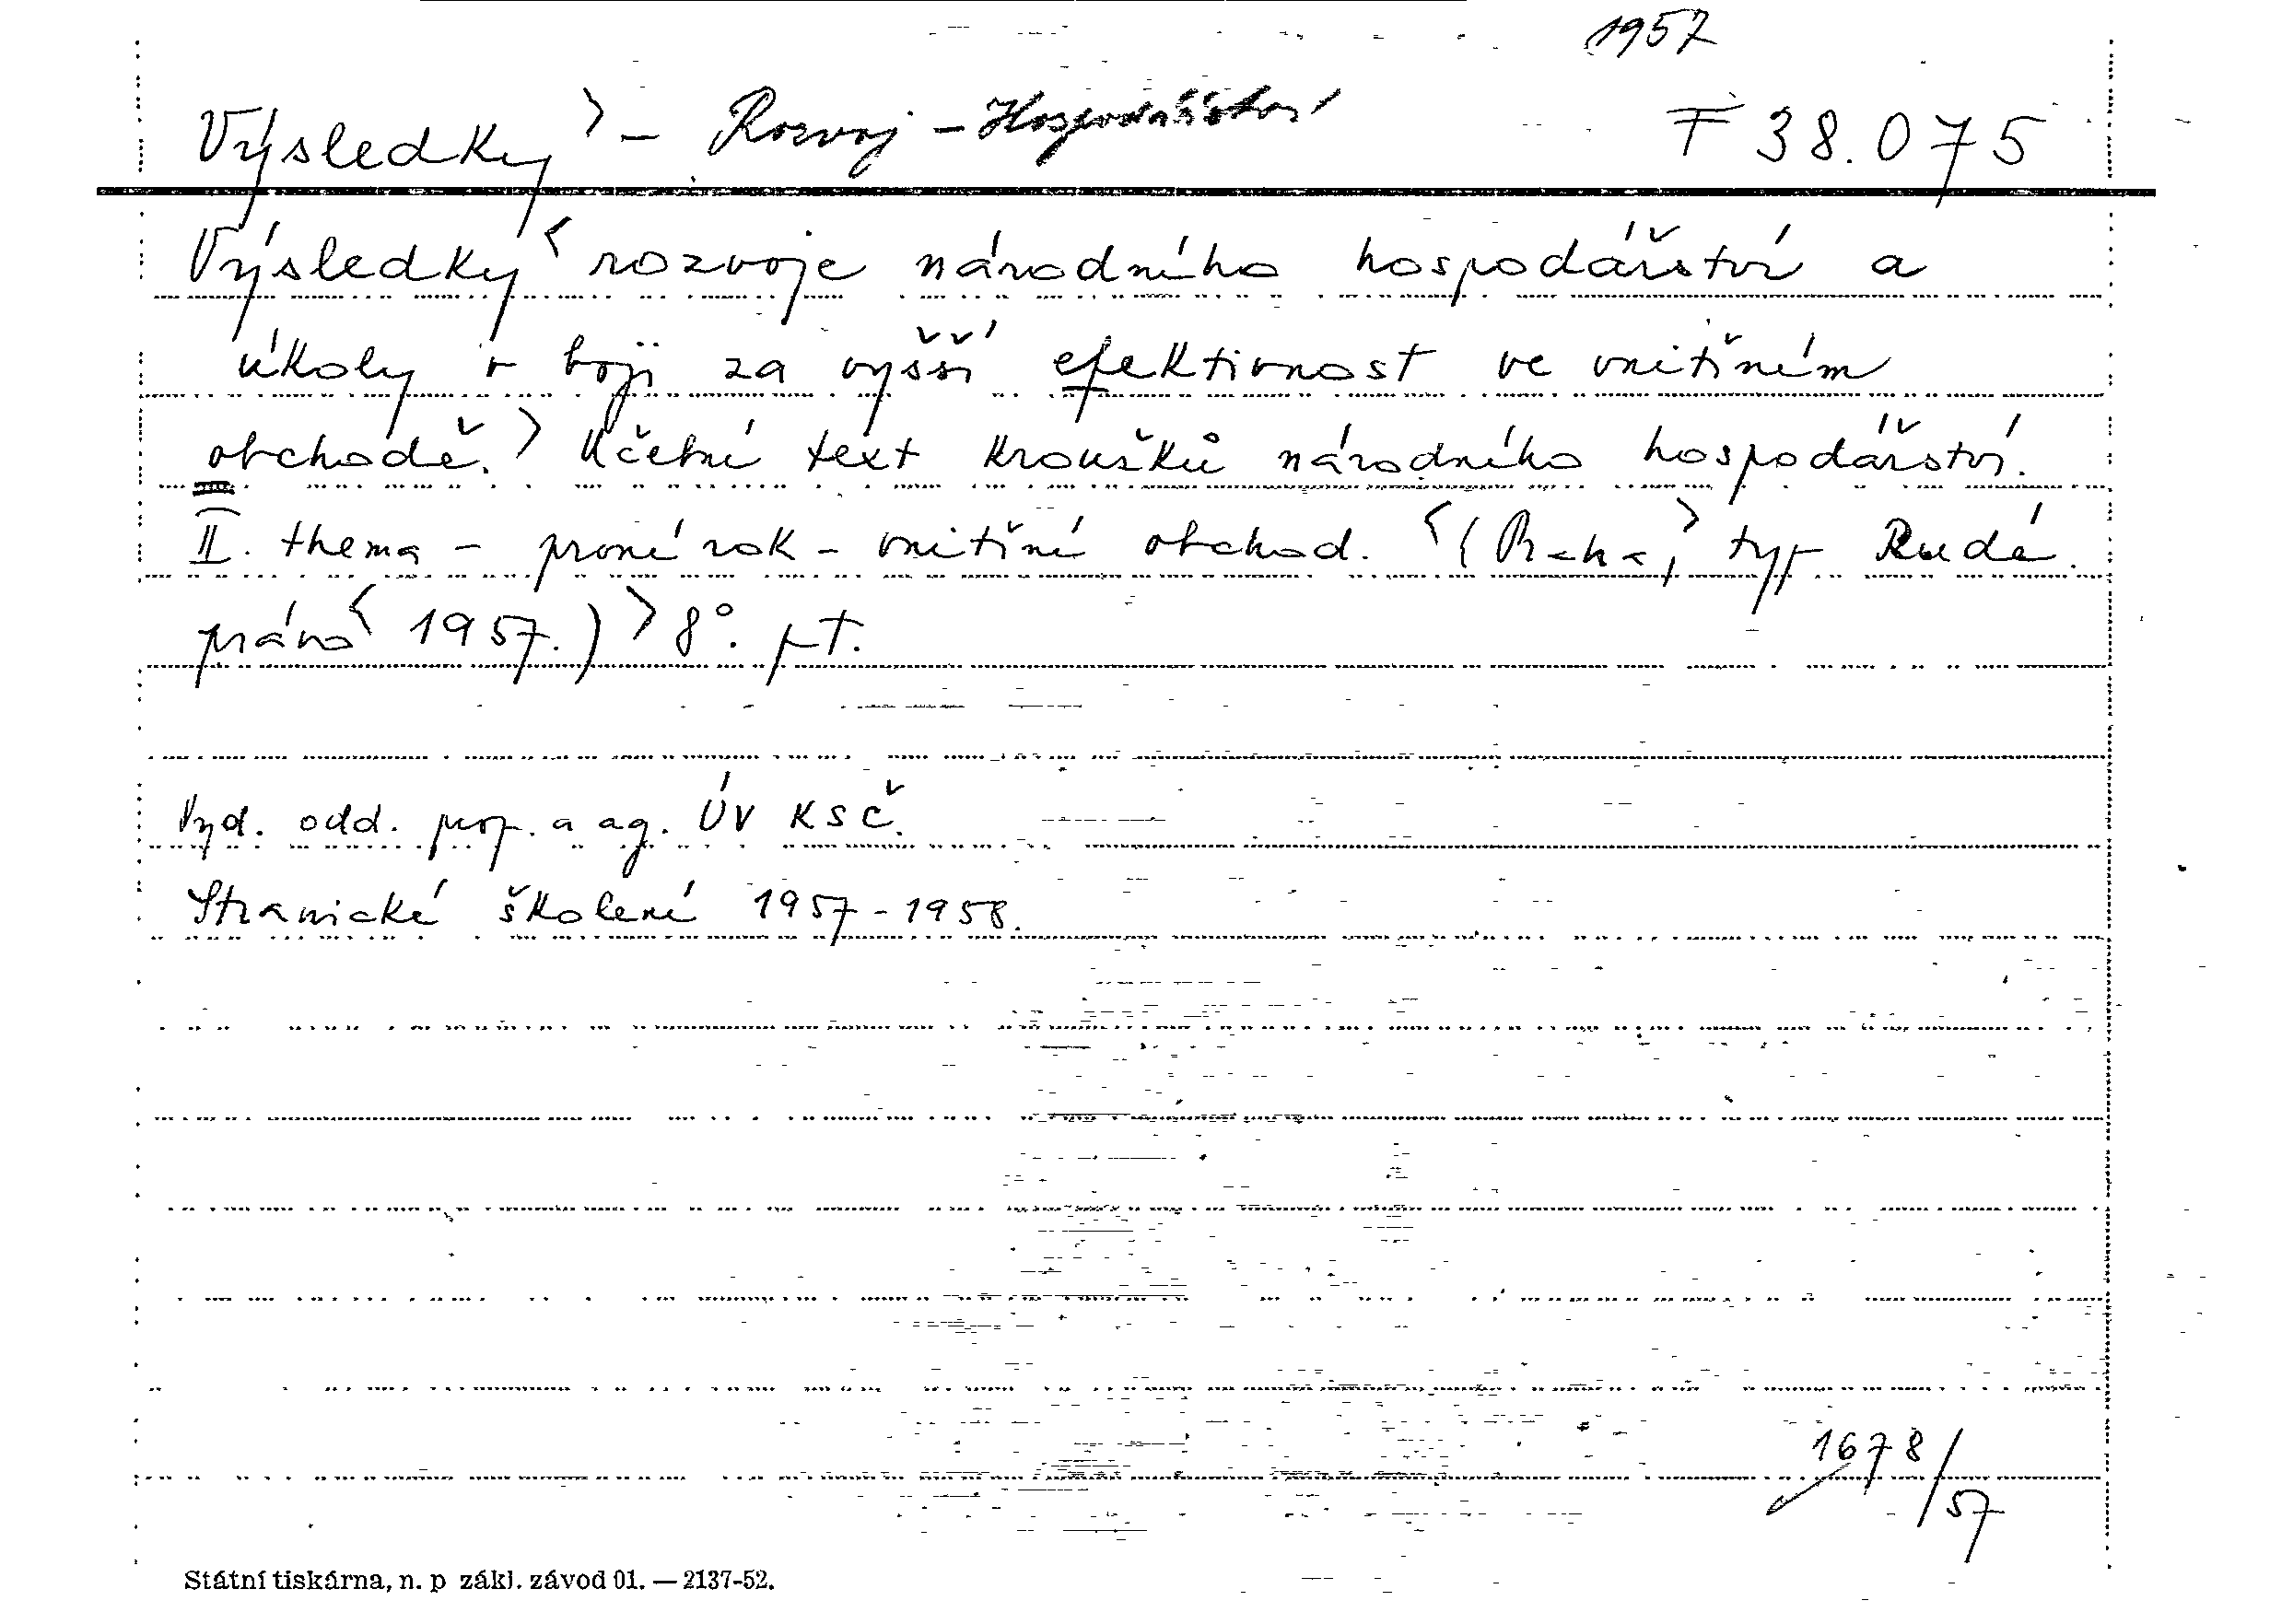 1957
Výsledky > - Rozvoj - Hospodářství F 38.075
Výsledky < rozvoje národního hospodářství a
úkoly v boji za vyšší efektivnost ve vnitřním
obchodě. > Učební text kroužků národního hospodářství.
II. thema - první rok - vnitřní obchod. < (Praha, > typ Rudé
právo < 1957.) > 8°. pt.
Vyd. odd. prop. a ag. ÚV KSČ.
Stranické školení 1957-1958.
1678/57
Státní tiskárna, n. p zákl. závod 01. — 2137-52.